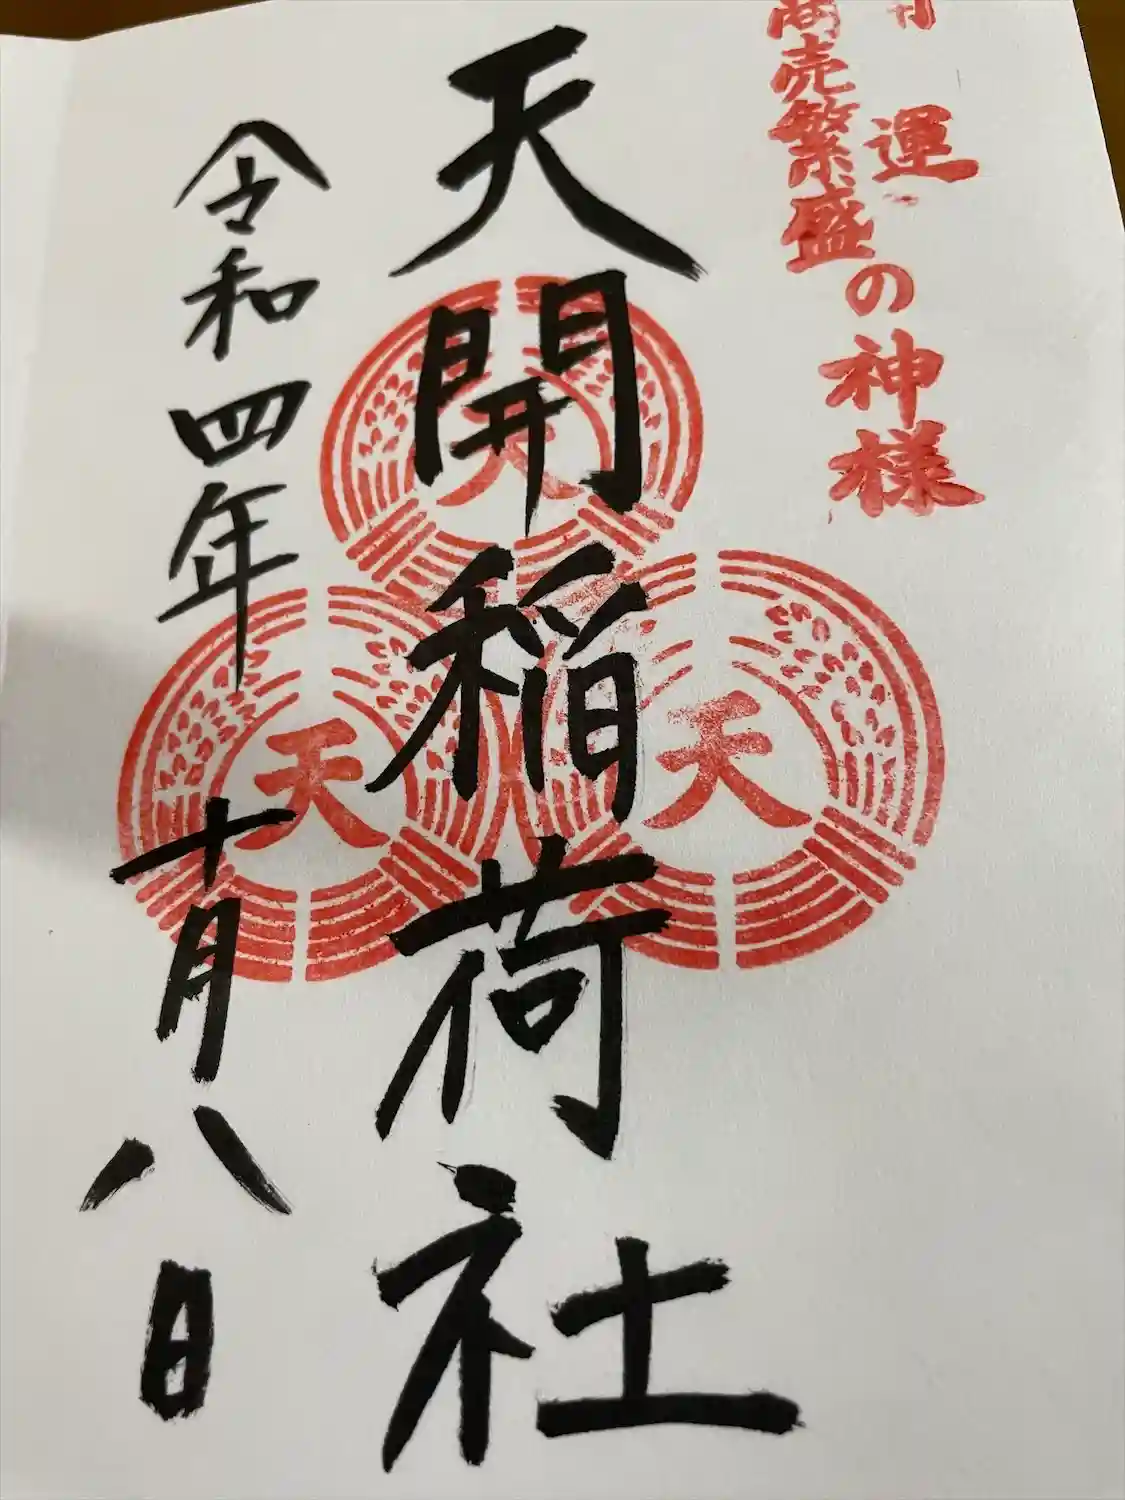 運
商売繁盛
の神様
天開稲荷社
天
天
天
令和四年
十月八日